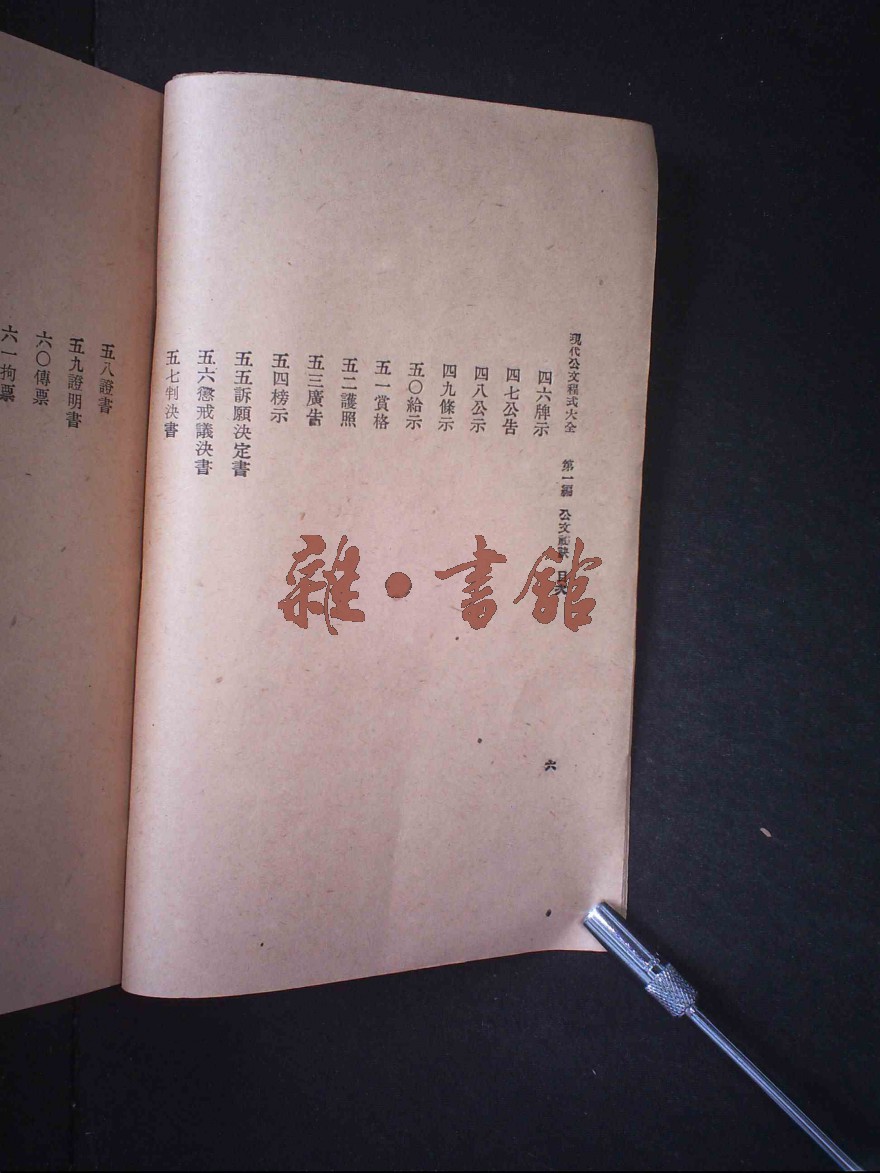 現代公文程式大全 第一編 公文 目次
六
四六牌示
四七公告
四八公示
四九條示
五〇給示
五一賞格
五二護照
五三廣告
五四榜示
五五訴願決定書
五六懲戒議決書
五七判決書
五八證書
五九證明書
六〇傳票
六一拘票
雜·書館